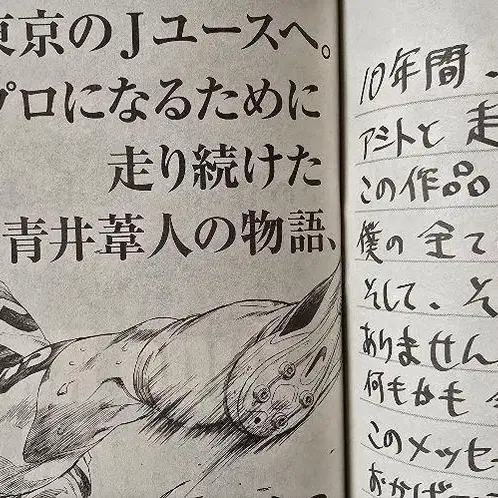 東京のJユースへ。
プロになるために
走り続けた
青井葦人の物語、
10年間
アシトと走
この作品
僕の全て
そして、そ
ありません
何もかも
このメッセー
おかげ